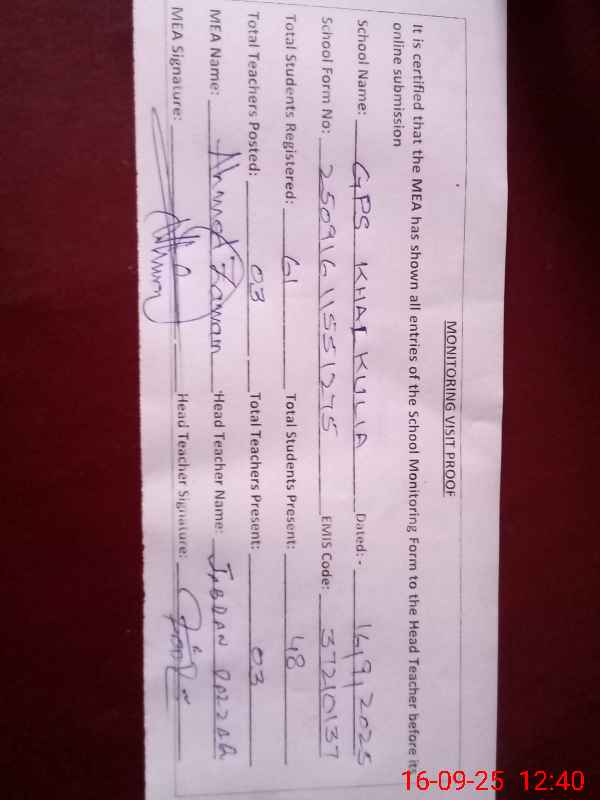 MONITORING VISIT PROOF
It is certified that the MEA has shown all entries of the School Monitoring Form to the Head Teacher before its
online submission
School Name: GPS KHAI KULIA Dated:- 16/9/2025
School Form No: 250916115551275 EMIS Code: 37210137
Total Students Registered: 61 Total Students Present: 48
Total Teachers Posted: 03 Total Teachers Present: 03
MEA Name: Ahmed Zaman Head Teacher Name:
MEA Signature: Head Teacher Signature:
16-09-25 12:40